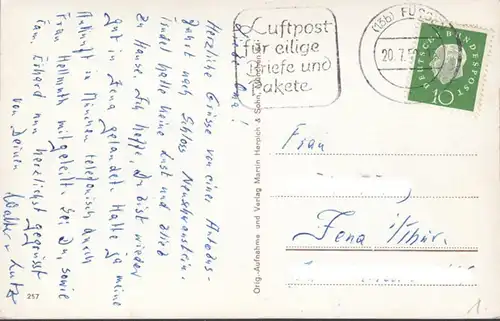 Liebe Oma!
Herzliche Grüsse von einer Autobus-
fahrt nach Schloss Neuschwanstein.
Insel hatte keine Lust und blieb
zu Hause. Ich hoffe, Du bist wieder
gut in Jena gelandet. Hatte ja meine
Ankunft in München telefonisch durch
Frau Hellmuth mitgeteilt. Sei Du, sowie
Fam. Erhard nun herzlichst gegrüsst
von Deinen Walter u. Lutz
257
Orig.-Aufnahme und Verlag Martin Herpich & Sohn, München
Luftpost
für eilige
Briefe und
Pakete
(13b) FÜSSEN
20.7.59
DEUTSCHE BUNDESPOST
10
Frau
Jena /Thür.
1.